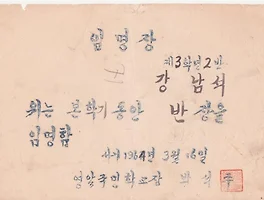 임명장
제3학년2반
강남석
위는 본학기 동안 반장을
임명함
서기 1964년 3월 16일
영암국민학교장 박석주